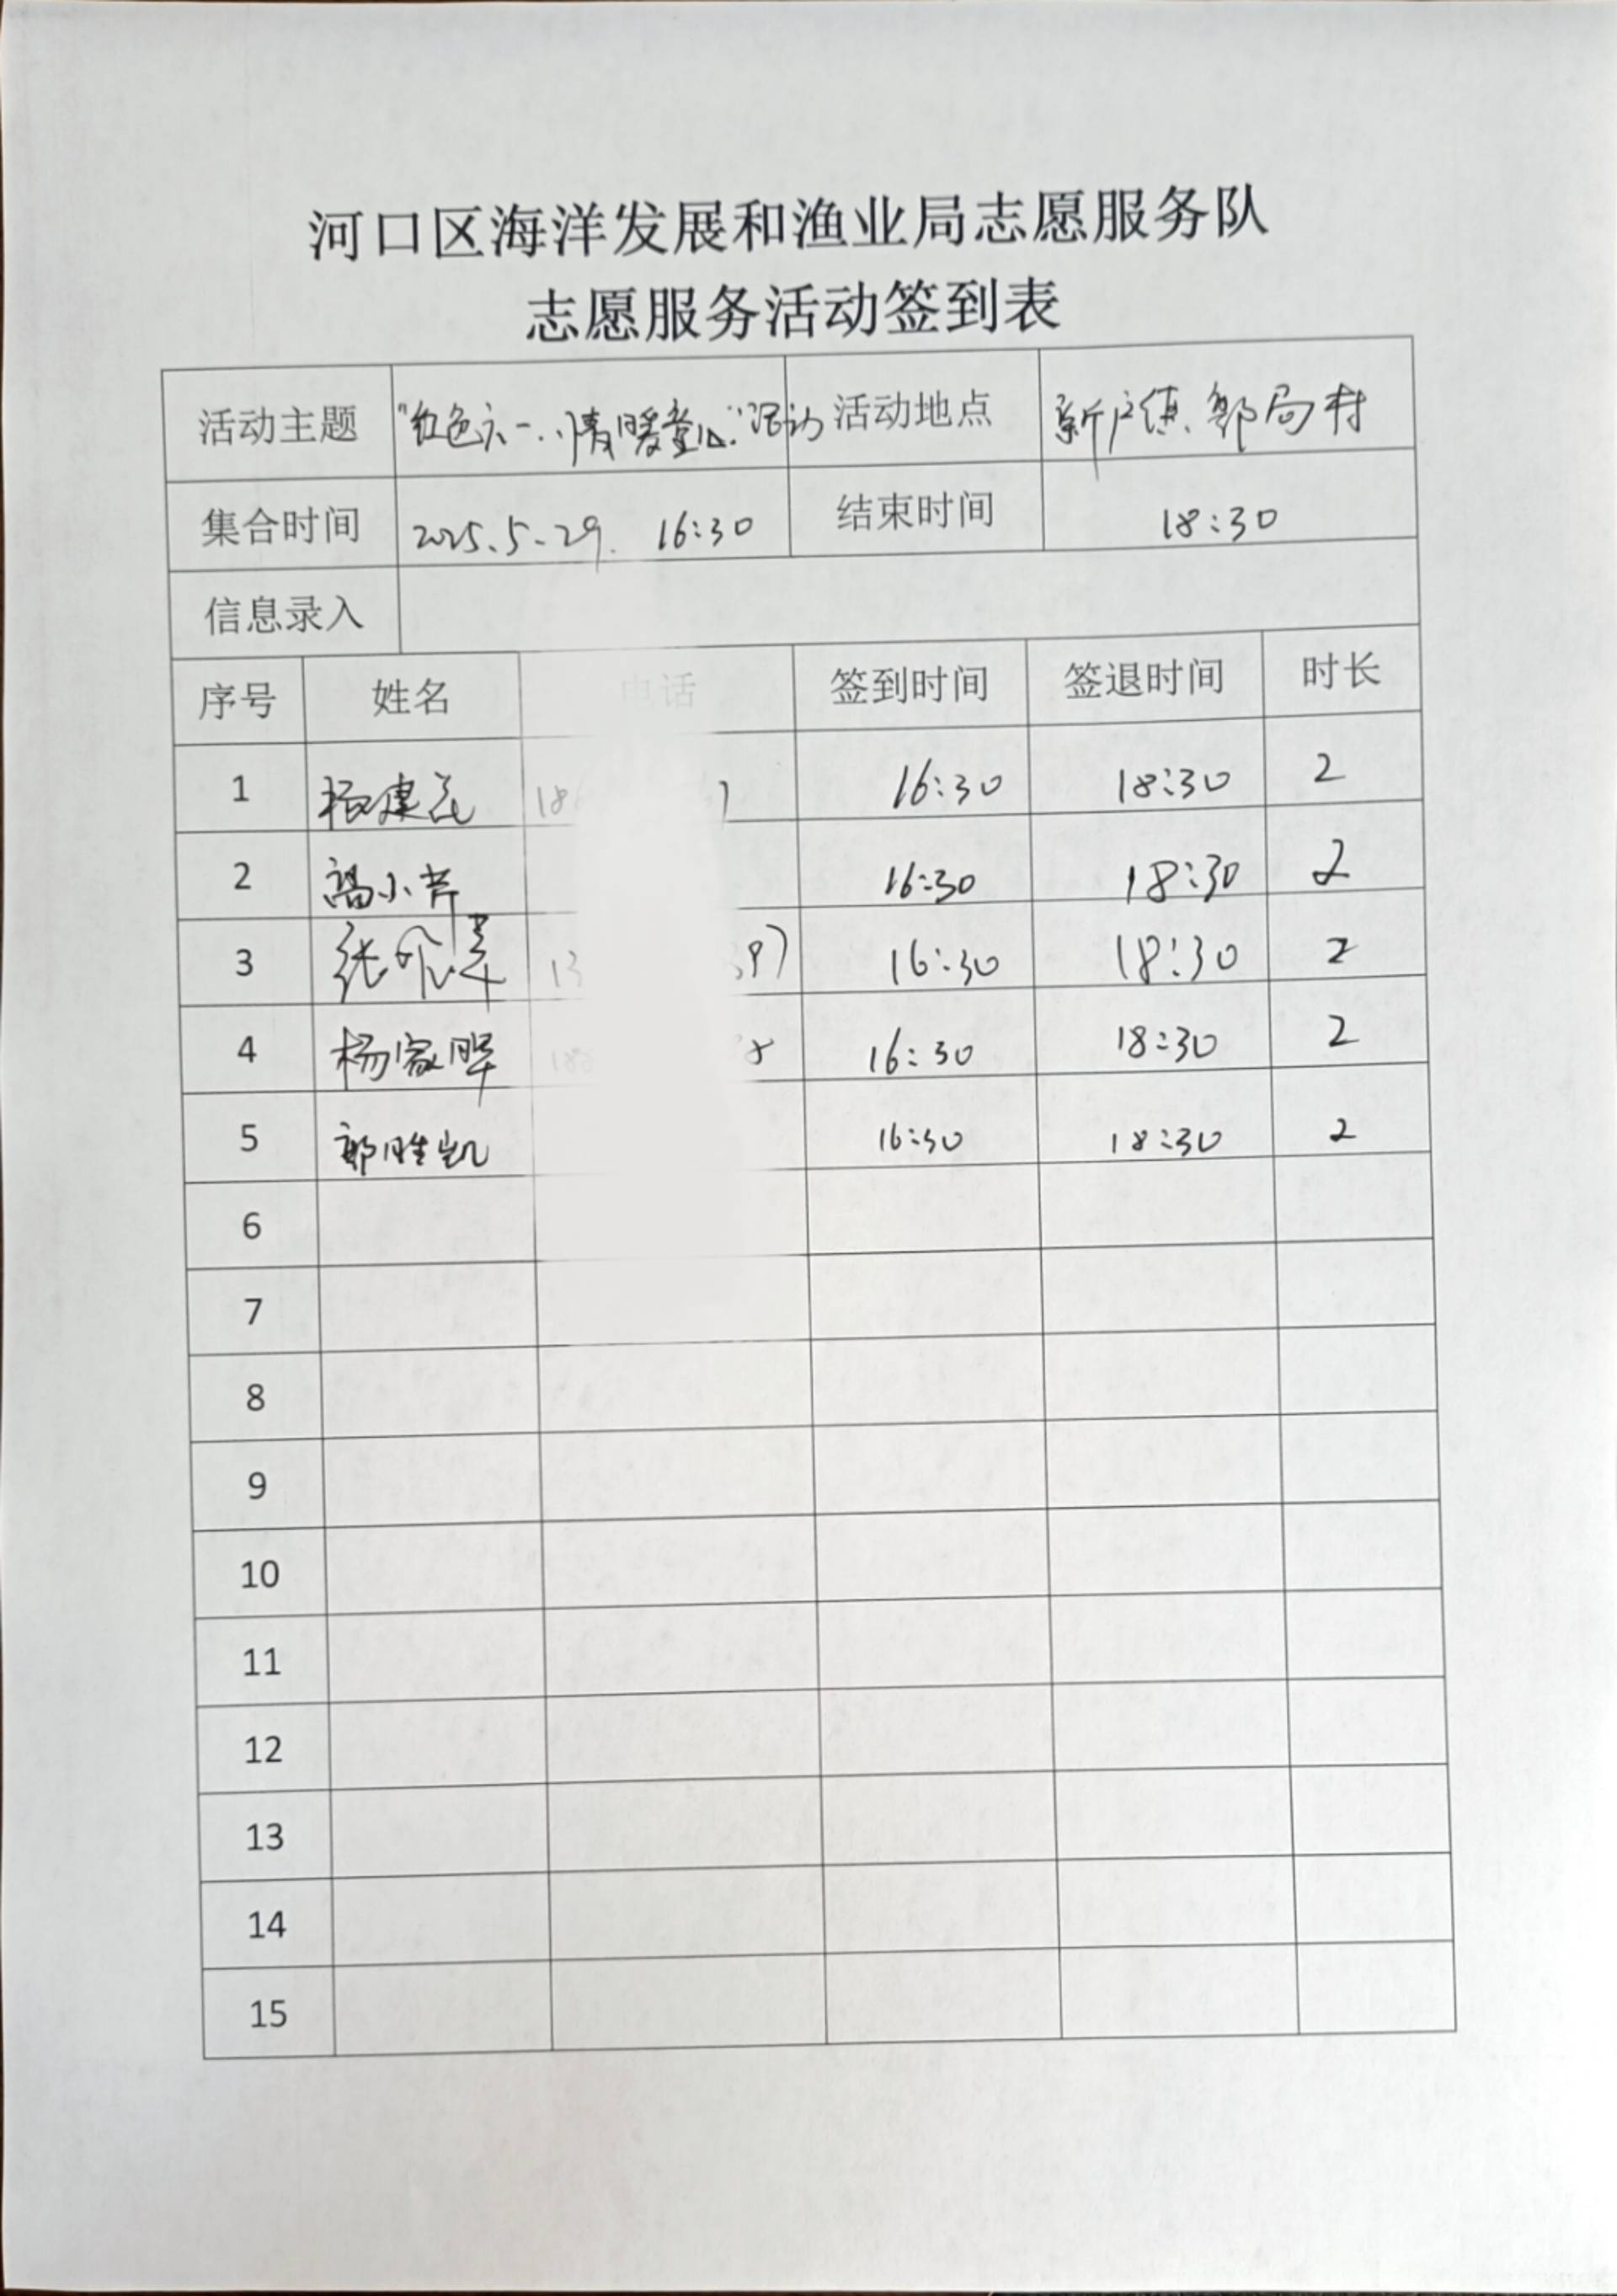 河口区海洋发展和渔业局志愿服务队
志愿服务活动签到表
活动主题 "红色六一、情暖童心"活动 活动地点 新户镇 郭局村
集合时间 2025.5.29. 16:30 结束时间 18:30
信息录入
序号 姓名 电话 签到时间 签退时间 时长
1 杨建 16:30 18:30 2
2 小芹 16:30 18:30 2
3 张 16:30 18:30 2
4 杨家晖 16:30 18:30 2
5 郭胜凯 16:30 18:30 2
6
7
8
9
10
11
12
13
14
15